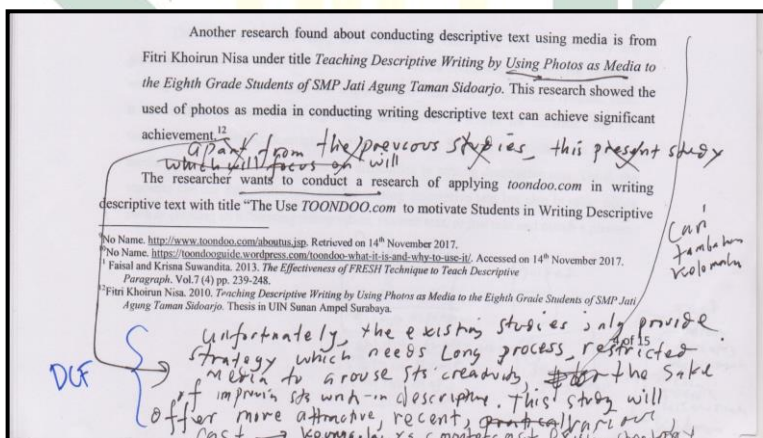 Another research found about conducting descriptive text using media is from
Fitri Khoirun Nisa under title Teaching Descriptive Writing by Using Photos as Media to
the Eighth Grade Students of SMP Jati Agung Taman Sidoarjo. This research showed the
used of photos as media in conducting writing descriptive text can achieve significant
achievement.12
apart from the previous studies, this present study
which will focus on will
The researcher wants to conduct a research of applying toondoo.com in writing
descriptive text with title "The Use TOONDOO.com to motivate Students in Writing Descriptive
Cari
tambahan
9No Name. http://www.toondoo.com/aboutus.jsp. Retrieved on 14th November 2017.
10No Name. https://toondooguide.wordpress.com/toondoo-what-it-is-and-why-to-use-it/. Accessed on 14th November 2017.
1 Faisal and Krisna Suwandita. 2013. The Effectiveness of FRESH Technique to Teach Descriptive
Paragraph. Vol.7 (4) pp. 239-248.
12Fitri Khoirun Nisa. 2010. Teaching Descriptive Writing by Using Photos as Media to the Eighth Grade Students of SMP Jati
Agung Taman Sidoarjo. Thesis in UIN Sunan Ampel Surabaya.
unfortunately, the existing studies only provide
4 of 15
strategy which needs Long process, restricted
media to arouse sts' creativity, the sake
of improvin sts writ-in descriptive. This study will
offer more attractive, recent, various
DCF